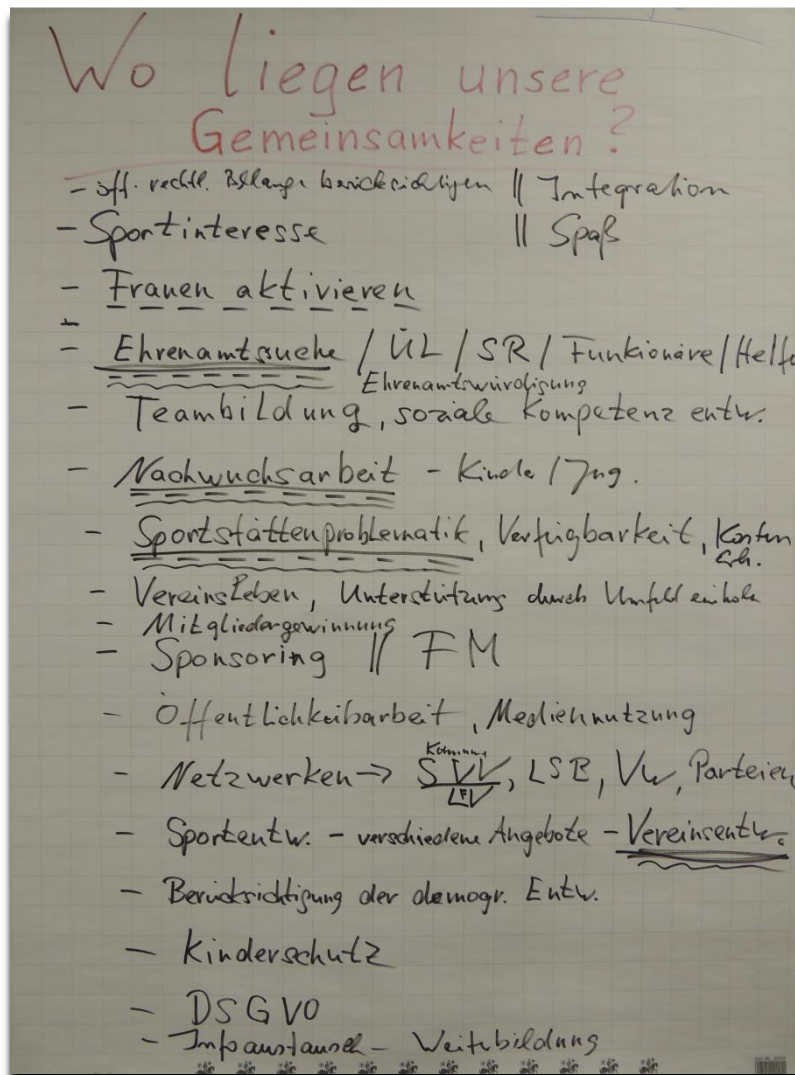 Wo liegen unsere
Gemeinsamkeiten?
- öff. rechtl. Belange berücksichtigen || Integration
- Sportinteresse || Spaß
- Frauen aktivieren
- Ehrenamtssuche / ÜL / SR / Funkionäre / Helfe
Ehrenamtswürdigung
- Teambildung, soziale Kompetenz entw.
- Nachwuchsarbeit - Kinde / Jug.
- Sportstättenproblematik, Verfügbarkeit, Kosten
- Vereinsleben, Unterstützung durch Umfeld einhole
- Mitgliedergewinnung
- Sponsoring || FM
- Öffentlichkeibarbeit, Mediennutzung
- Netzwerken → SVV, LSB, VW, Parteien
- Sportentw. - verschiedene Angebote - Vereinsentw.
- Berücksichtigung der demogr. Entw.
- Kinderschutz
- DSGVO
- Infoaustausch - Weitebildung